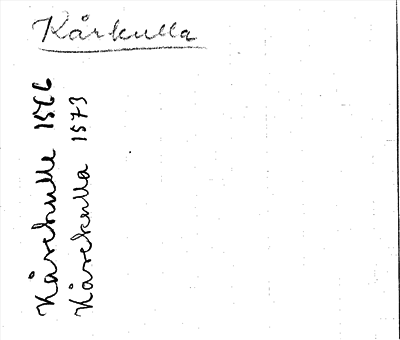 Kårkulla
Kårekulle 1566
Kårekulla 1573